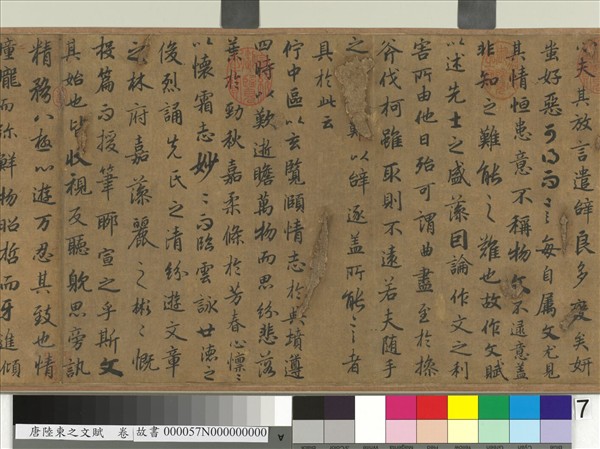 心夫其放言遣辭良多變矣妍
蚩好惡可得而言每自属文尤見
其情恒患意不稱物文不逮意盖
非知之難能之難也故作文賦
以述先士之盛藻因論作文之利
害所由他日殆可謂曲盡至於操
斧伐柯雖取則不遠若夫随手
之難以辭逐盖所能言者
具於此云
佇中區以玄覽頤情志於典墳遵
四時以歎逝瞻萬物而思紛悲落
葉於勁秋嘉柔條於芳春心懍〻
以懷霜志妙〻而臨雲詠世德之
俊烈誦先民之清芬遊文章
之林府嘉藻麗之彬〻慨
投篇而援筆聊宣之乎斯文
其始也皆收視反聽躭思旁訊
精騖八極心遊万仞其致也情
瞳曨而弥鮮物昭晢而互進傾
唐陸柬之文賦 卷 故書 000057N000000000
A
7